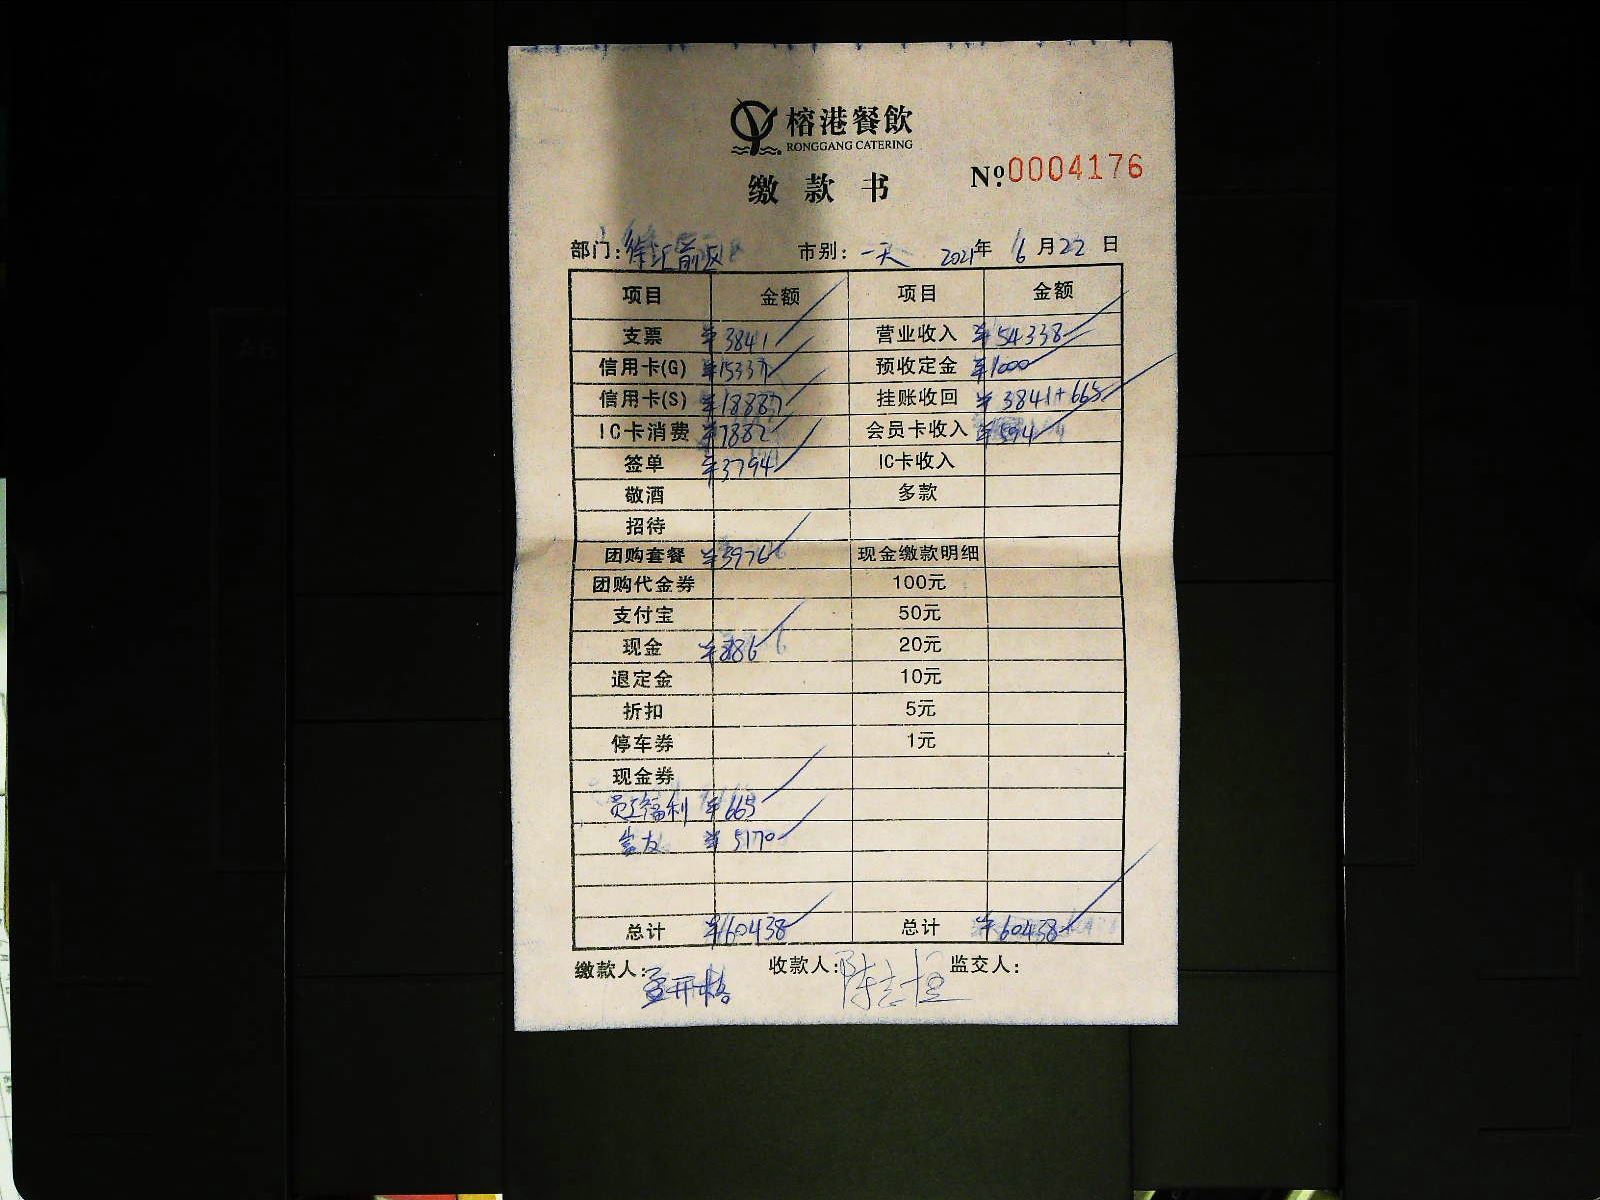 榕港餐飲
RONGGANG CATERING
缴款书 Nº.0004176
部门:徐汇前区 市别:一天 2021年6月22日
项目 金额 项目 金额
支票 ¥3841 营业收入 ¥54338
信用卡(G) ¥15337 预收定金 ¥1000
信用卡(S) ¥18887 挂账收回 ¥3841+665
IC卡消费 ¥7882 会员卡收入 ¥594
签单 ¥3794 IC卡收入
敬酒 多款
招待
团购套餐 ¥3976 现金缴款明细
团购代金券 100元
支付宝 50元
现金 ¥886 20元
退定金 10元
折扣 5元
停车券 1元
现金券
员工福利 ¥665
¥5170
总计 ¥60438 总计 ¥60438
缴款人: 收款人: 监交人: